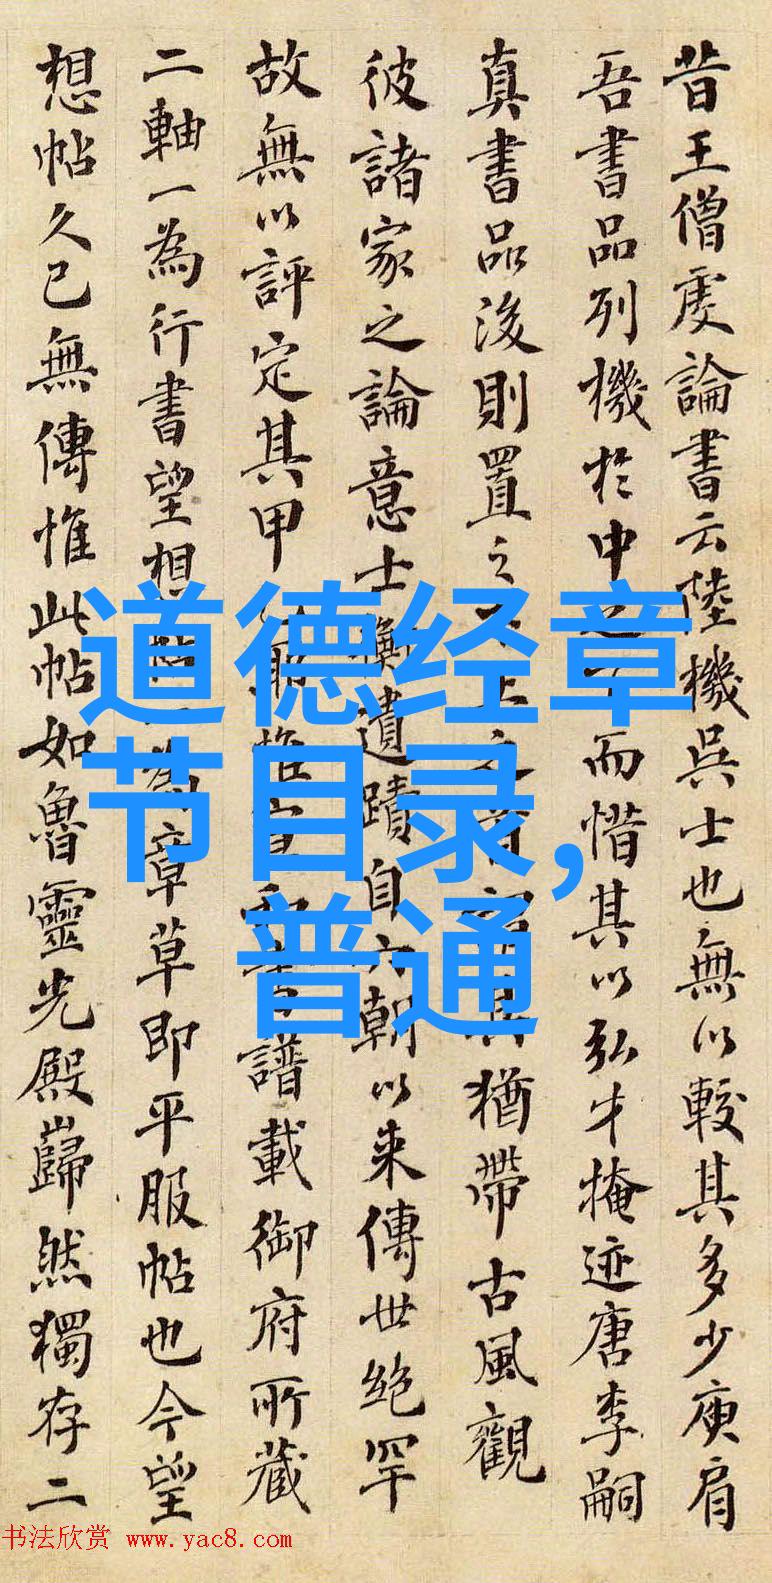 昔王僧虔論書云陸機吳士也無以較其多少庾肩
吾書品列機於中之 而惜其以弘才掩迹唐李嗣
真書品後則置之 上之 猶帶古風觀
彼諸家之論意士衡遺蹟自六朝以来傳世絶罕
故無以評定其甲 惟宣和書譜載御府所藏
二軸一為行書望想 章草即平服帖也今望
想帖久已無傳惟此帖如魯靈光殿巋然獨存二
道德经章
节目录,
普通
书法欣赏 www.yac8.com